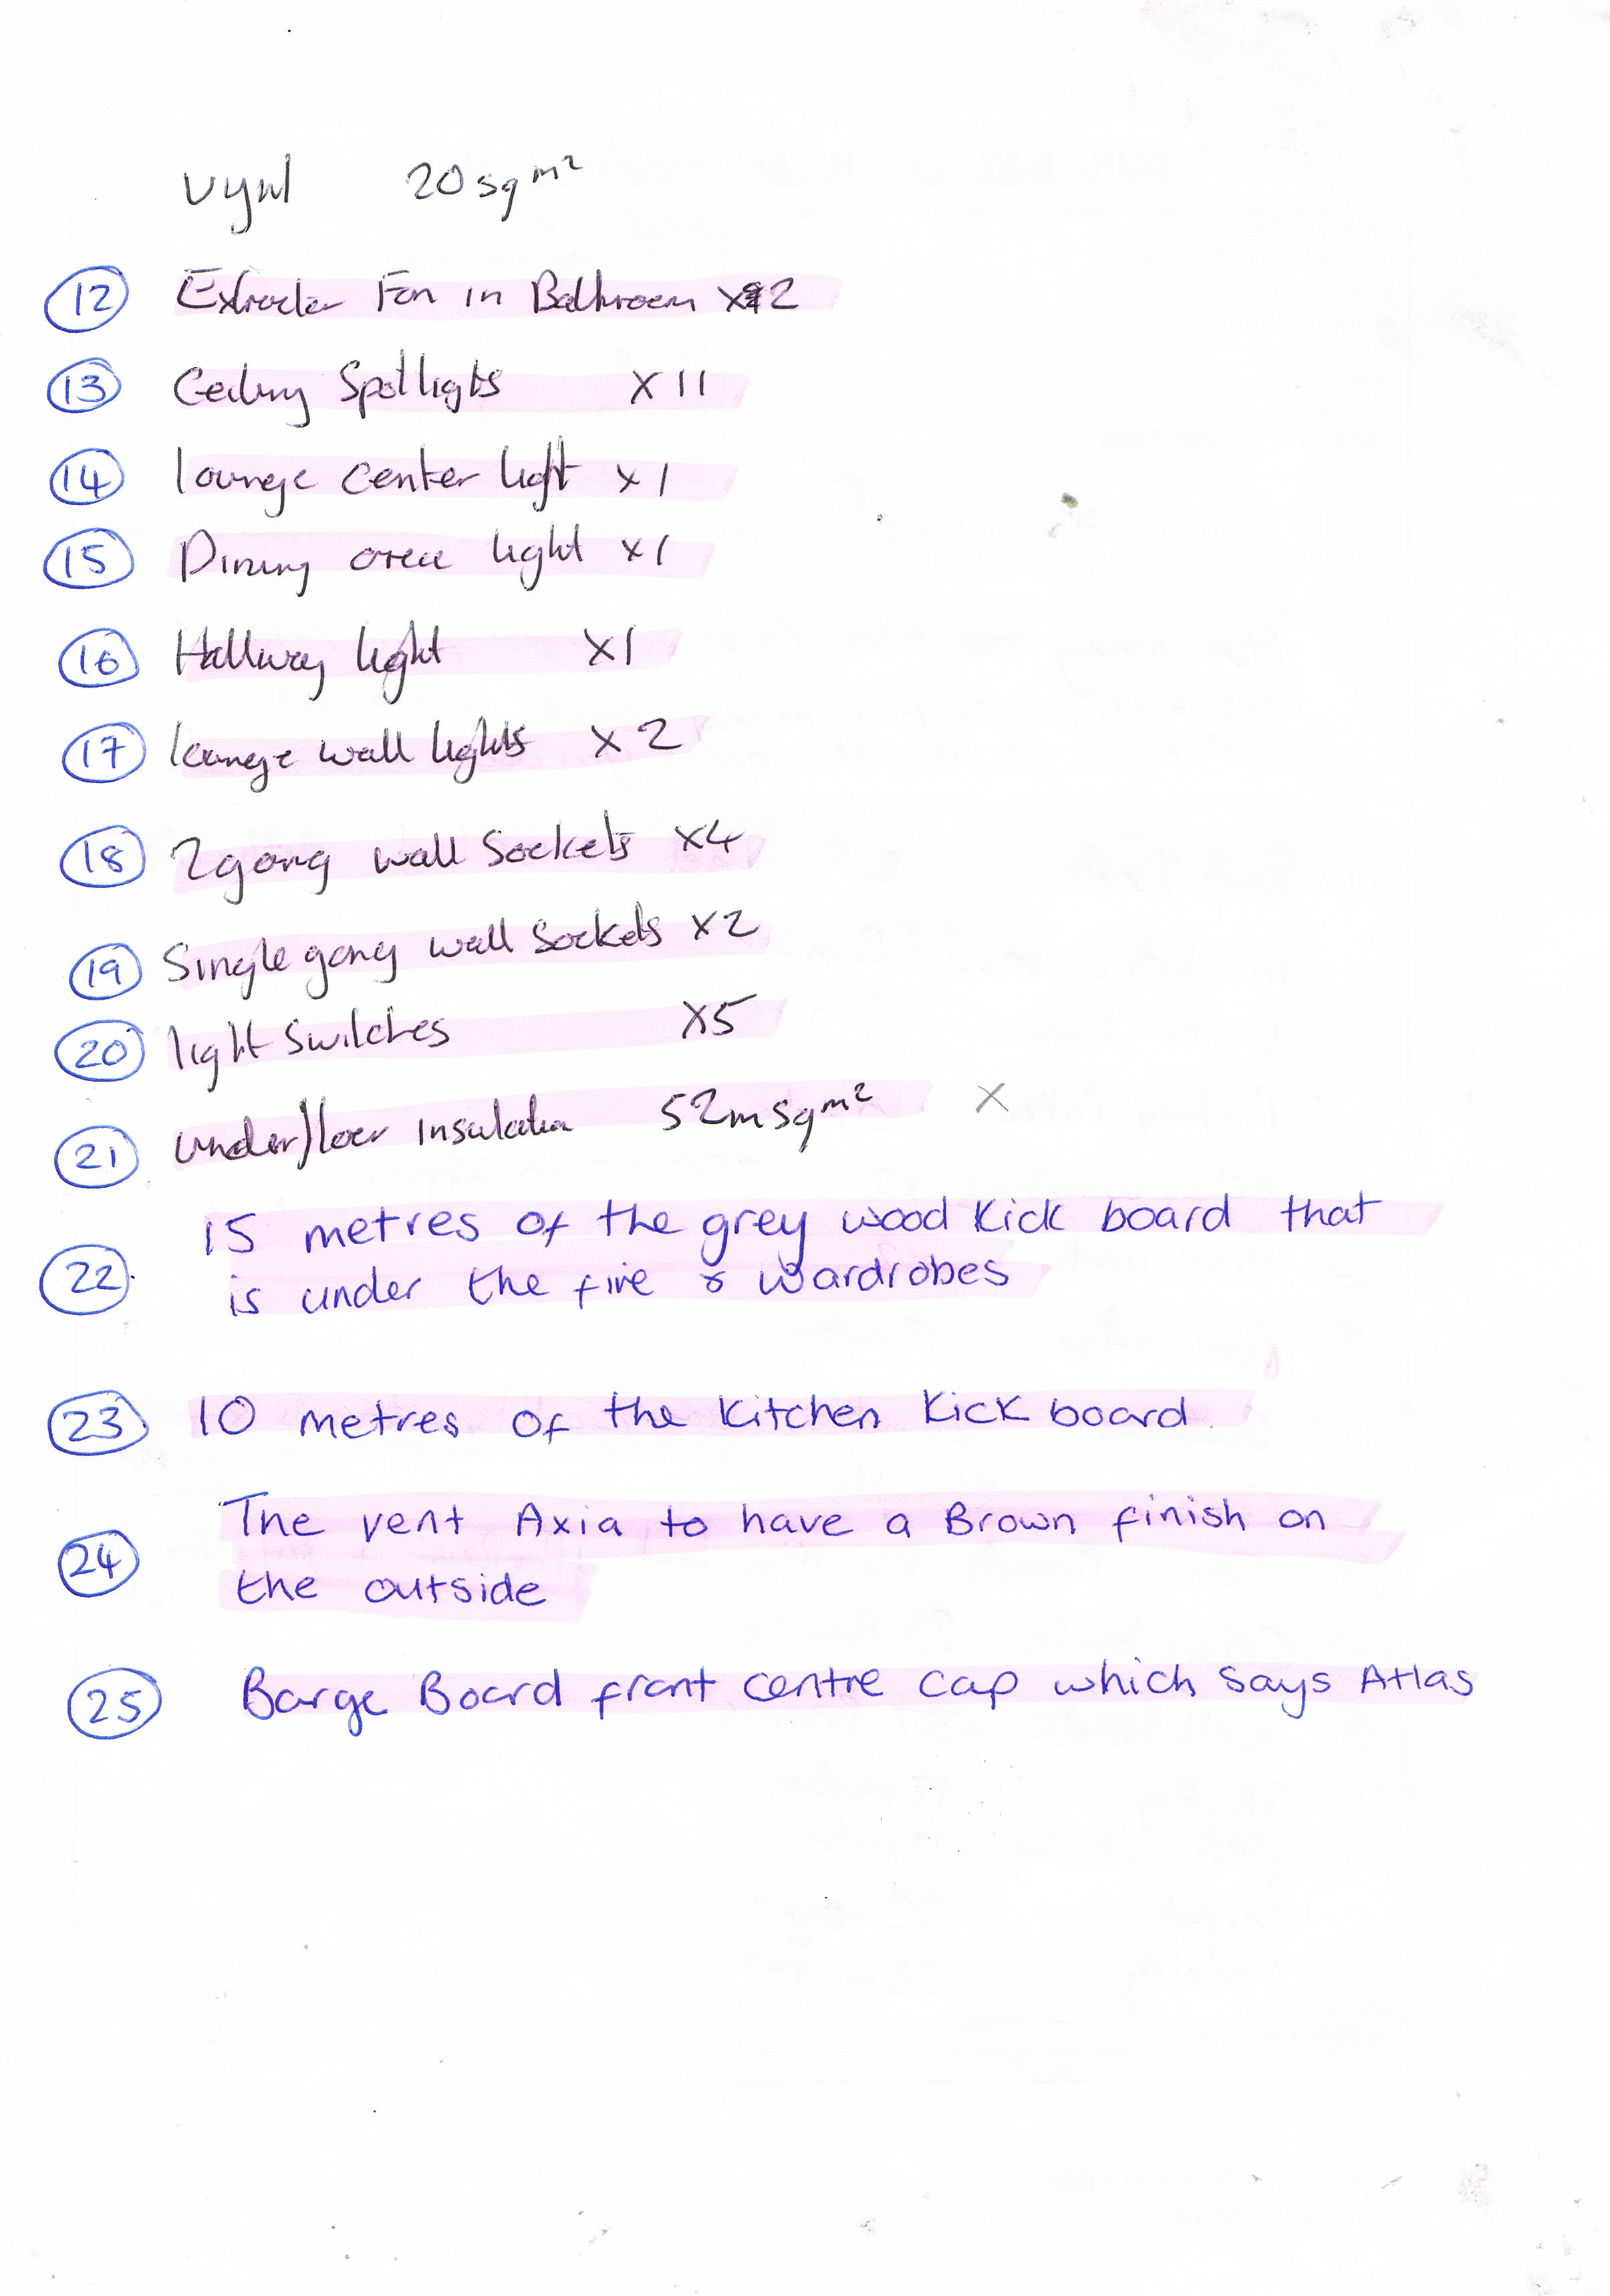 Vynl 20sqm²
12 Extractor Fan in Bathroom x2
13 Ceiling Spotlights x11
14 lounge center light x1
15 Dining area light x1
16 Hallway light x1
17 lounge wall lights x2
18 2gang wall Sockets x4
19 Single gang wall Sockets x2
20 light Switches x5
21 underfloor insulation 52msqm² x
15 metres of the grey wood Kick board that
22 is under the fire & wardrobes
23 10 metres of the Kitchen Kick board.
The vent Axia to have a Brown finish on
24 the outside
25 Barge Board front centre cap which says Atlas